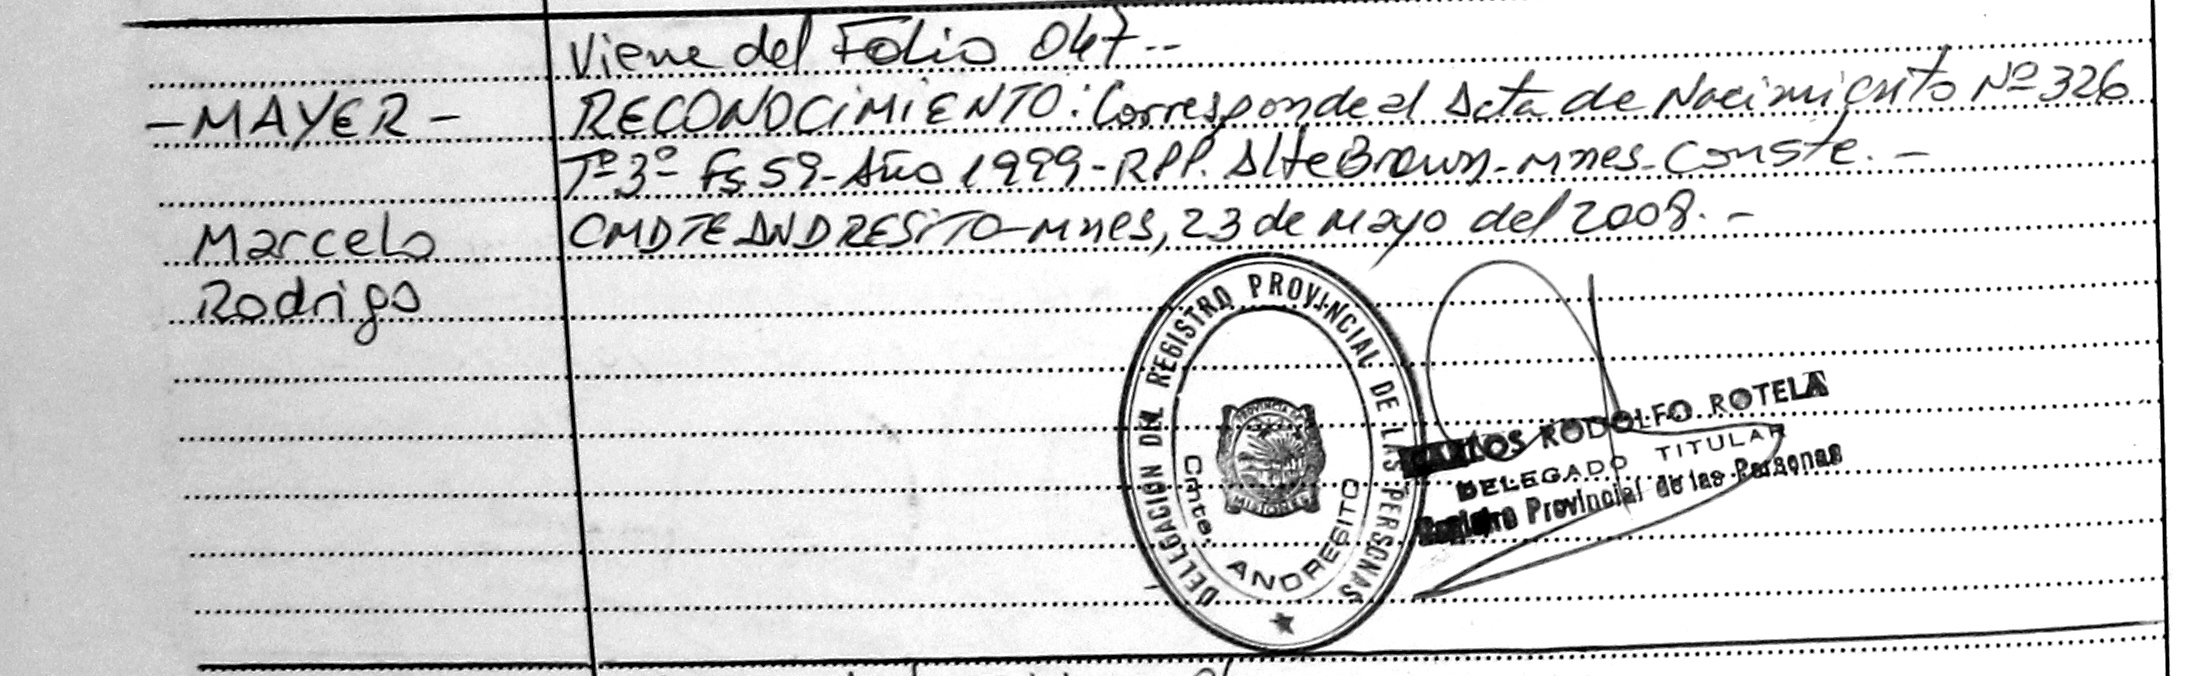 Viene del Folio 047--
-MAYER-
RECONOCIMIENTO: Corresponde al Acta de Nacimiento Nº 326
Tº3º Fs 59-Año 1999-RPP. Alte Brown-Mnes-Conste.-
Marcelo
CMDTE ANDRESITO-Mnes, 23 de Mayo del 2008.-
Rodrigo
DELEGACION DEL REGISTRO PROVINCIAL DE LAS PERSONAS
PROVINCIA DE
MISIONES
Cmte.
ANDRESITO
CARLOS RODOLFO ROTELA
DELEGADO TITULAR
Registro Provincial de las Personas